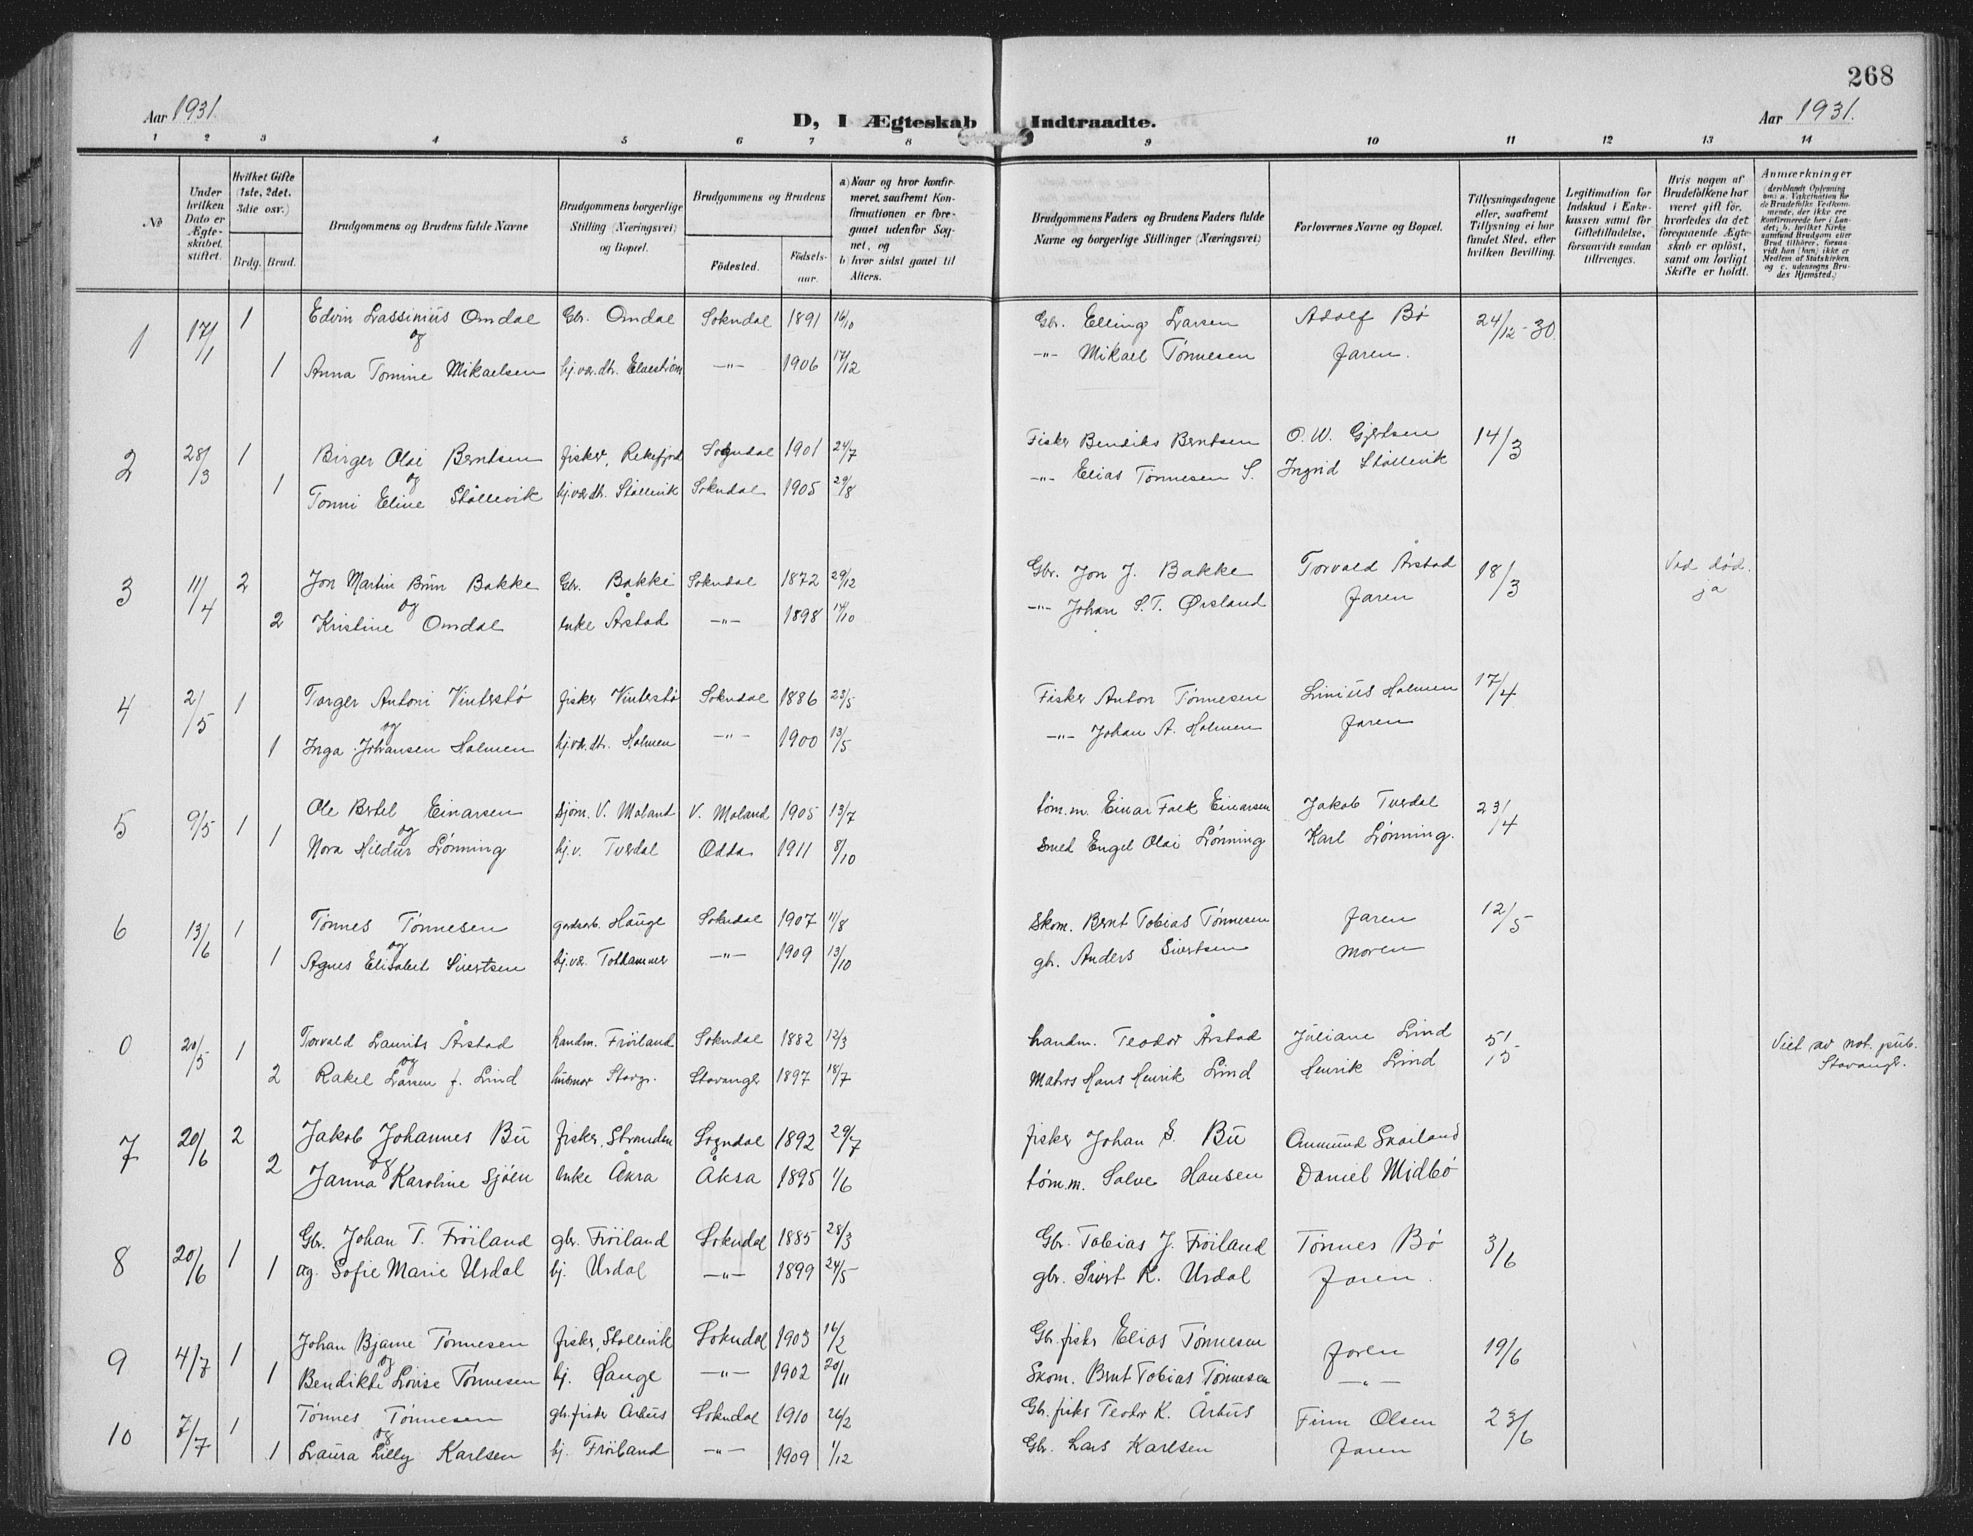 268
Aar 1931.
D, I Ægteskab Indtraadte.
Aar 1931.
1 2 3 4 5 6 7 8 9 10 11 12 13 14
No
Under hvilken Dato er Ægteskabet stiftet.
Hvilket Gifte (1ste, 2det, 3die osv.)
Brdg. Brud.
Brudgommens og Brudens fulde Navne
Brudgommens borgerlige Stilling (Næringsvei) og Bopæl.
Brudgommens og Brudens
Fødested.
Fødselsaar.
a) Naar og hvor konfirmeret, saafremt Konfirmationen er foregaaet udenfor Sognet, og
b) hvor sidst gaaet til Alters.
Brudgommens Faders og Brudens Faders fulde Navne og borgerlige Stillinger (Næringsvei)
Forlovernes Navne og Bopæl.
Tillysningsdagene eller, saafremt Tillysning ei har fundet Sted, efter hvilken Bevilling.
Legitimation for Indskud i Enkekassen samt for Giftetilladelse, forsaavidt saadan tiltrænges.
Hvis nogen af Brudefolkene har været gift før, hvorledes da det foregaaende Ægteskab er opløst, samt om lovligt Skifte er holdt.
Anmærkninger
(deriblandt Oplysning om: a. Vakcination for de Brudefolks Vedkommende, der ikke ere konfirmerede her i Landet; b. hvilket Kirkesamfund Brudgom eller Brud tilhører, forsaavidt han (hun) ikke er Medlem af Statskirken og c. udensogns Brudes Hjemsted.)
1 17/1 1 Edvin Lassinius Omdal Gbr. Omdal Sokndal 1891 16/10 Gbr. Elling Larsen Adolf Bø 24/12-30.
og
1 Anna Tomine Mikaelsen hj.vær.dtr. Elvestrøm -"- 1906 17/12 -"- Mikael Tønnesen faren.
2 28/3 1 Birger Olai Berntsen fisker, Rekefjord Sogndal 1901 24/7 Fisker Bendiks Berntsen O. W. Gjertsen 14/3
og
1 Tonni Eline Stållevik hj.vær.dtr. Stållevik Sokndal 1905 29/8 -"- Elias Tønnesen S. Ingrid Stållevik
3 11/4 2 Jon Martin Brun Bakke Gbr. Bakke Sokndal 1872 29/12 Gbr. Jon J. Bakke Torvald Årstad 18/3 Ved død.
og
2 Kristine Omdal enke Årstad -"- 1898 14/10 -"- Johan S. T. Ørsland faren ja
4 2/5 1 Torger Antoni Vinterstø fisker Vinterstø Sokndal 1886 23/5 Fisker Anton Tønnesen Linius Holmen 17/4
og
1 Inga Johansen Holmen hj.vær.dtr. Holmen -"- 1900 13/5 -"- Johan A. Holmen faren
5 9/5 1 Ole Bertel Einarsen sjøm. V. Moland V. Moland 1905 13/7 tøm.m. Einar Falk Einarsen Jakob Tverdal 23/4
og
1 Nora Hildur Lønning hj.v. Tverdal Odda 1911 8/10 smed Engel Olai Lønning Karl Lønning.
6 13/6 1 Tønnes Tønnesen gardsarb. Hauge Sokndal 1907 11/8 Skom. Bernt Tobias Tønnesen faren 12/5
og
1 Agnes Elisabet Sivertsen hj.vær. Tothammer -"- 1909 13/10 gbr. Anders Sivertsen moren
0 20/5 1 Torvald Laurits Årstad handm. Frøiland Sokndal 1882 12/3 handm. Teodor Årstad Juliane Lind 5/5 Viet av not. pub.
og
2 Rakel Larsen f. Lind husmor Stavgr. Stavanger 1897 18/7 Matros Hans Henrik Lind Henrik Lind Stavangr.
7 20/6 2 Jakob Johannes Bu fisker, Stranden Sogndal 1892 29/7 fisker Johan S. Bu Anmund Skailand
og
2 Janna Karoline Sjøen enke Åkra Åksa 1895 1/6 tøm.m. Salve Hansen Daniel Midbø
8 20/6 1 Gbr. Johan T. Frøiland gbr. Frøiland Sokndal 1885 28/3 Gbr. Tobias J. Frøiland Tønnes Bø 3/6
1 og. Sofie Marie Urdal hj. Urdal -"- 1899 24/5 gbr. Sivert K. Urdal faren.
9 4/7 1 Johan Bjarne Tønnesen fisker, Stallevik Sokndal 1903 16/2 Gbr. fisker Elias Tønnesen faren 19/6
og
1 Bendikte Lovise Tønnesen hj. Hauge -"- 1902 20/11 Skom. Bernt Tobias Tønnesen -"-
10 7/7 1 Tønnes Tønnesen gbr. fisker Årbus Sokndal 1910 26/2 Gbr. fisker Teodor K. Årbus Finn Olsen 23/6
og
1 Laura Lilly Karlsen hj. Frøiland -"- 1909 1/12 Gbr. Lars Karlsen faren